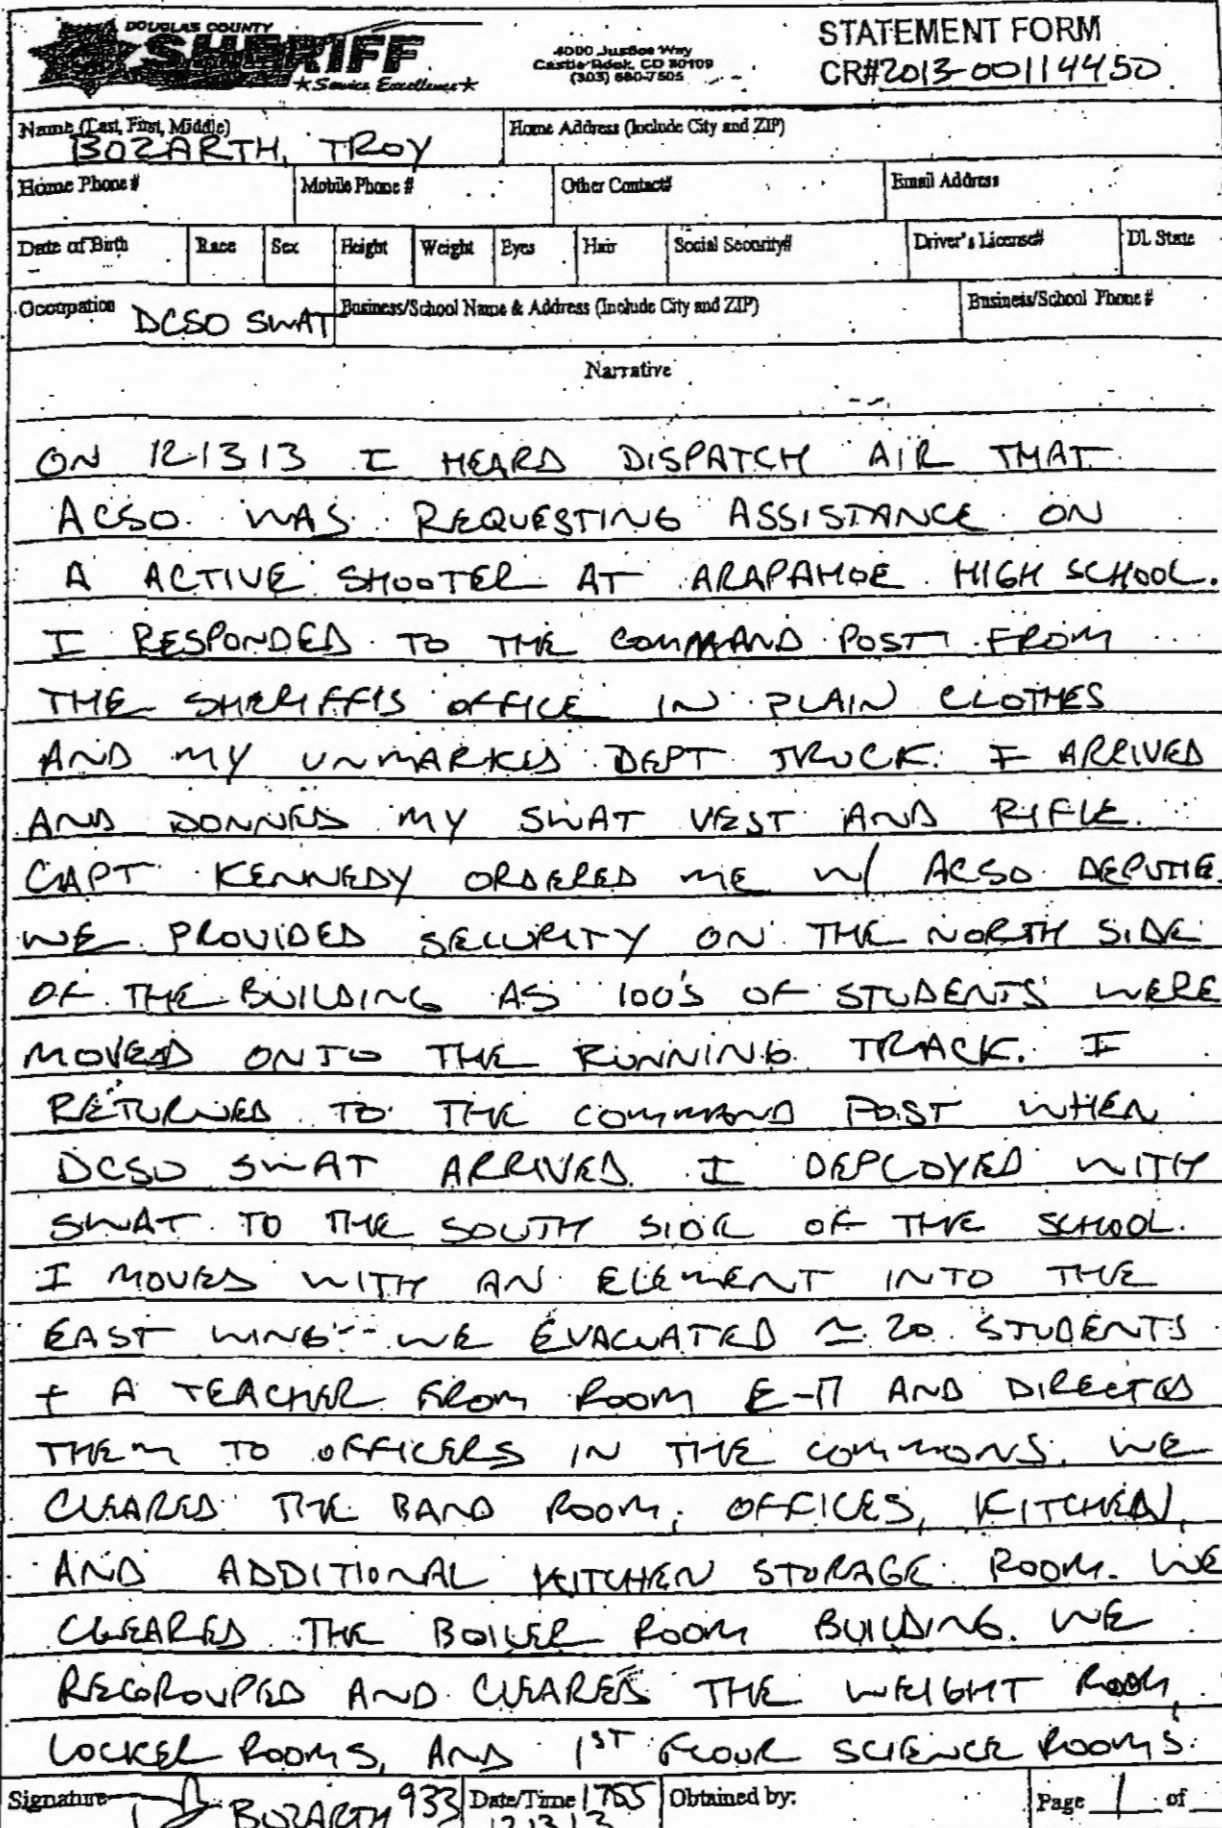 DOUGLAS COUNTY
SHERIFF
Service Excellence
4000 Justice Way
Castle Rock, CO 80109
(303) 660-7505
STATEMENT FORM
CR# 2013-00114450
Name (Last, First, Middle) Home Address (Include City and ZIP)
BOZARTH, TROY
Home Phone # Mobile Phone # Other Contact# Email Address
Date of Birth Race Sex Height Weight Eyes Hair Social Security# Driver's License# DL State
Occupation DCSO SWAT Business/School Name & Address (Include City and ZIP) Business/School Phone #
Narrative
ON 12-13 13 I HEARD DISPATCH AIR THAT
ACSO WAS REQUESTING ASSISTANCE ON
A ACTIVE SHOOTER AT ARAPAHOE HIGH SCHOOL.
I RESPONDED TO THE COMMAND POST FROM
THE SHERIFF'S OFFICE IN PLAIN CLOTHES
AND MY UNMARKED DEPT TRUCK. I ARRIVED
AND DONNED MY SWAT VEST AND RIFLE.
CAPT KENNEDY ORDERED ME W/ ACSO DEPUTIE.
WE PROVIDED SECURITY ON THE NORTH SIDE
OF THE BUILDING AS 100'S OF STUDENTS WERE
MOVED ONTO THE RUNNING TRACK. I
RETURNED TO THE COMMAND POST WHEN
DCSO SWAT ARRIVED. I DEPLOYED WITH
SWAT TO THE SOUTH SIDE OF THE SCHOOL.
I MOVED WITH AN ELEMENT INTO THE
EAST WING -- WE EVACUATED ≃ 20 STUDENTS
+ A TEACHER FROM ROOM AND DIRECTED
THEM TO OFFICERS IN THE COMMONS. WE
CLEARED THE BAND ROOM, OFFICES, KITCHEN,
AND ADDITIONAL KITCHEN STORAGE ROOM. WE
CLEARED THE BOILER ROOM BUILDING. WE
REGROUPED AND CLEARED THE WEIGHT ROOM,
LOCKER ROOMS, AND 1ST FLOOR SCIENCE ROOMS.
Signature BOZARTH 933 Date/Time 1755 Obtained by: Page 1 of
12 13 13